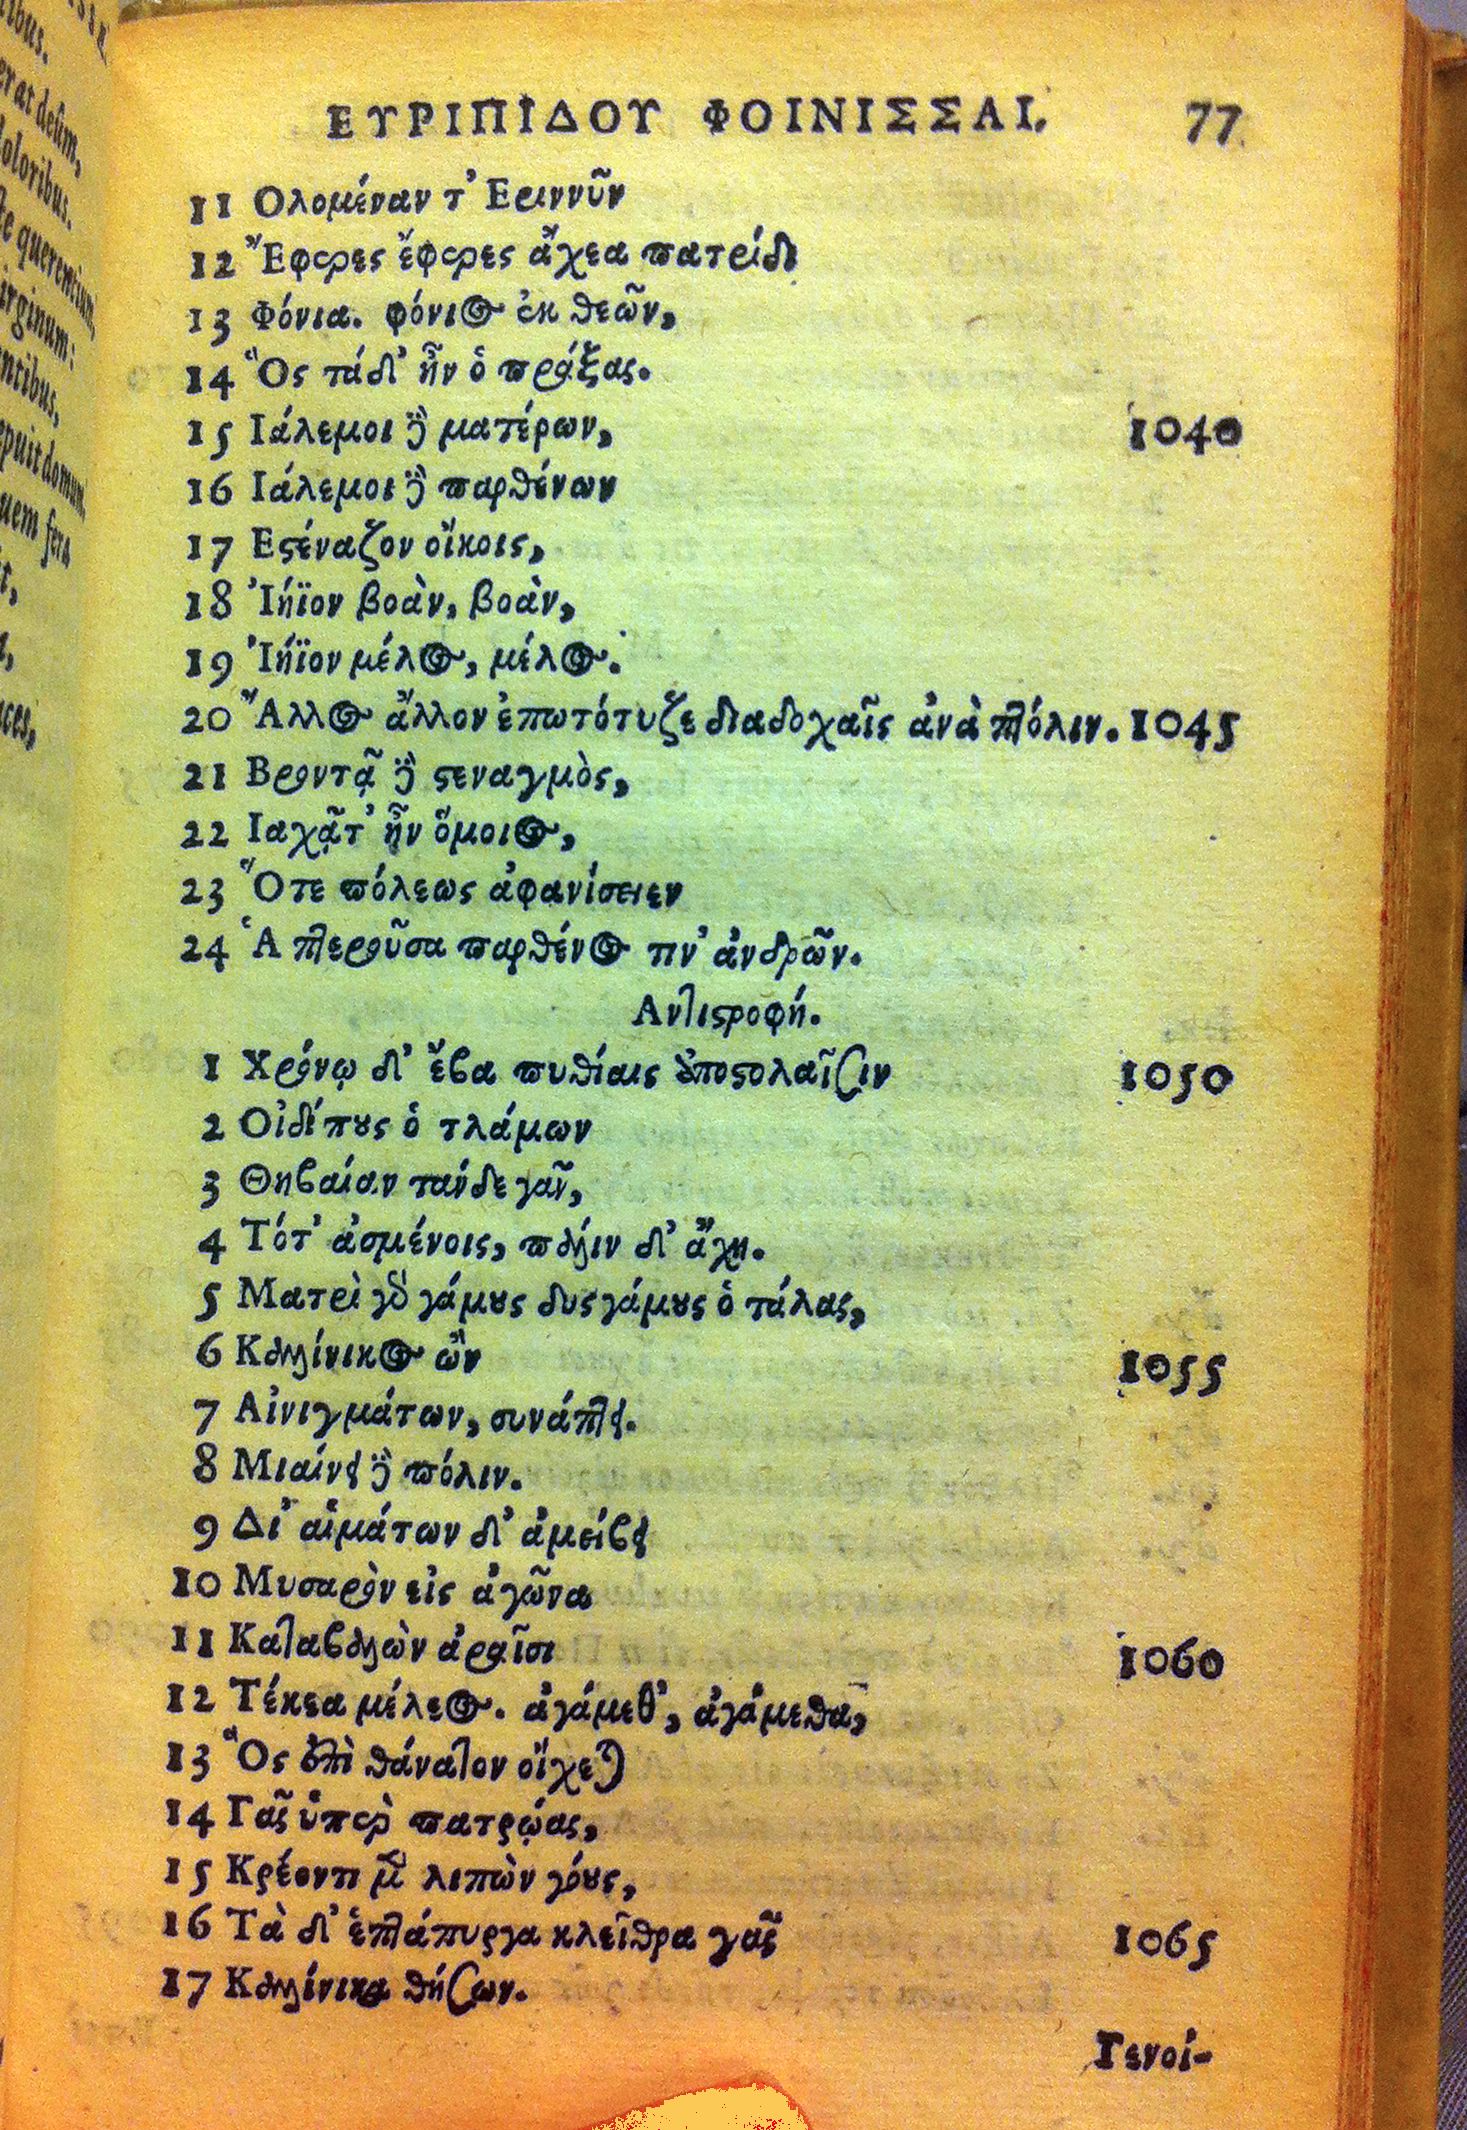 ΕΥΡΙΠΙΔΟΥ ΦΟΙΝΙΣΣΑΙ. 77
11 Ολομέναν τ' Εριννῦν
12 Ἔφερες ἔφερες ἄχεα πατρίδι
13 Φόνια. φόνιος ἐκ θεῶν,
14 Ὃς τάδ' ἦν ὁ πράξας.
15 Ιάλεμοι δὲ ματέρων, 1040
16 Ιάλεμοι δὲ παρθένων
17 Εστέναζον οἴκοις,
18 Ἰήϊον βοὰν, βοὰν,
19 Ἰήϊον μέλος, μέλος.
20 Ἄλλος ἄλλον ἐπωτότυζε διαδοχαῖς ἀνὰ πτόλιν. 1045
21 Βροντᾷ δὲ στεναγμὸς,
22 Ιαχᾷ τ' ἦν ὅμοιος,
23 Ὅτε πόλεως ἀφανίσειεν
24 Ἁ πτεροῦσα παρθένος τιν' ἀνδρῶν.
Αντιστροφή.
1 Χρόνῳ δ' ἔβα πυθίαις ἀποστολαῖσιν 1050
2 Οἰδίπους ὁ τλάμων
3 Θηβαίαν τάνδε γᾶν,
4 Τότ' ἀσμένοις, πάλιν δ' ἄχη.
5 Ματρὶ γὰρ γάμους δυσγάμους ὁ τάλας,
6 Καλλίνικος ὢν 1055
7 Αἰνιγμάτων, συνάπτει.
8 Μιαίνει δὲ πόλιν.
9 Δι' αἱμάτων δ' ἀμείβει
10 Μυσαρὸν εἰς ἀγῶνα
11 Καταβαλὼν ἀραῖσι 1060
12 Τέκεα μέλεος. ἀγάμεθ', ἀγάμεθα,
13 Ὃς ἐπὶ θάνατον οἴχεται
14 Γᾶς ὑπὲρ πατρῴας,
15 Κρέοντι μὲν λιπὼν γόους,
16 Τὰ δ' ἑπτάπυργα κλεῖθρα γᾶς 1065
17 Καλλίνικα θήσων.
Γενοί-